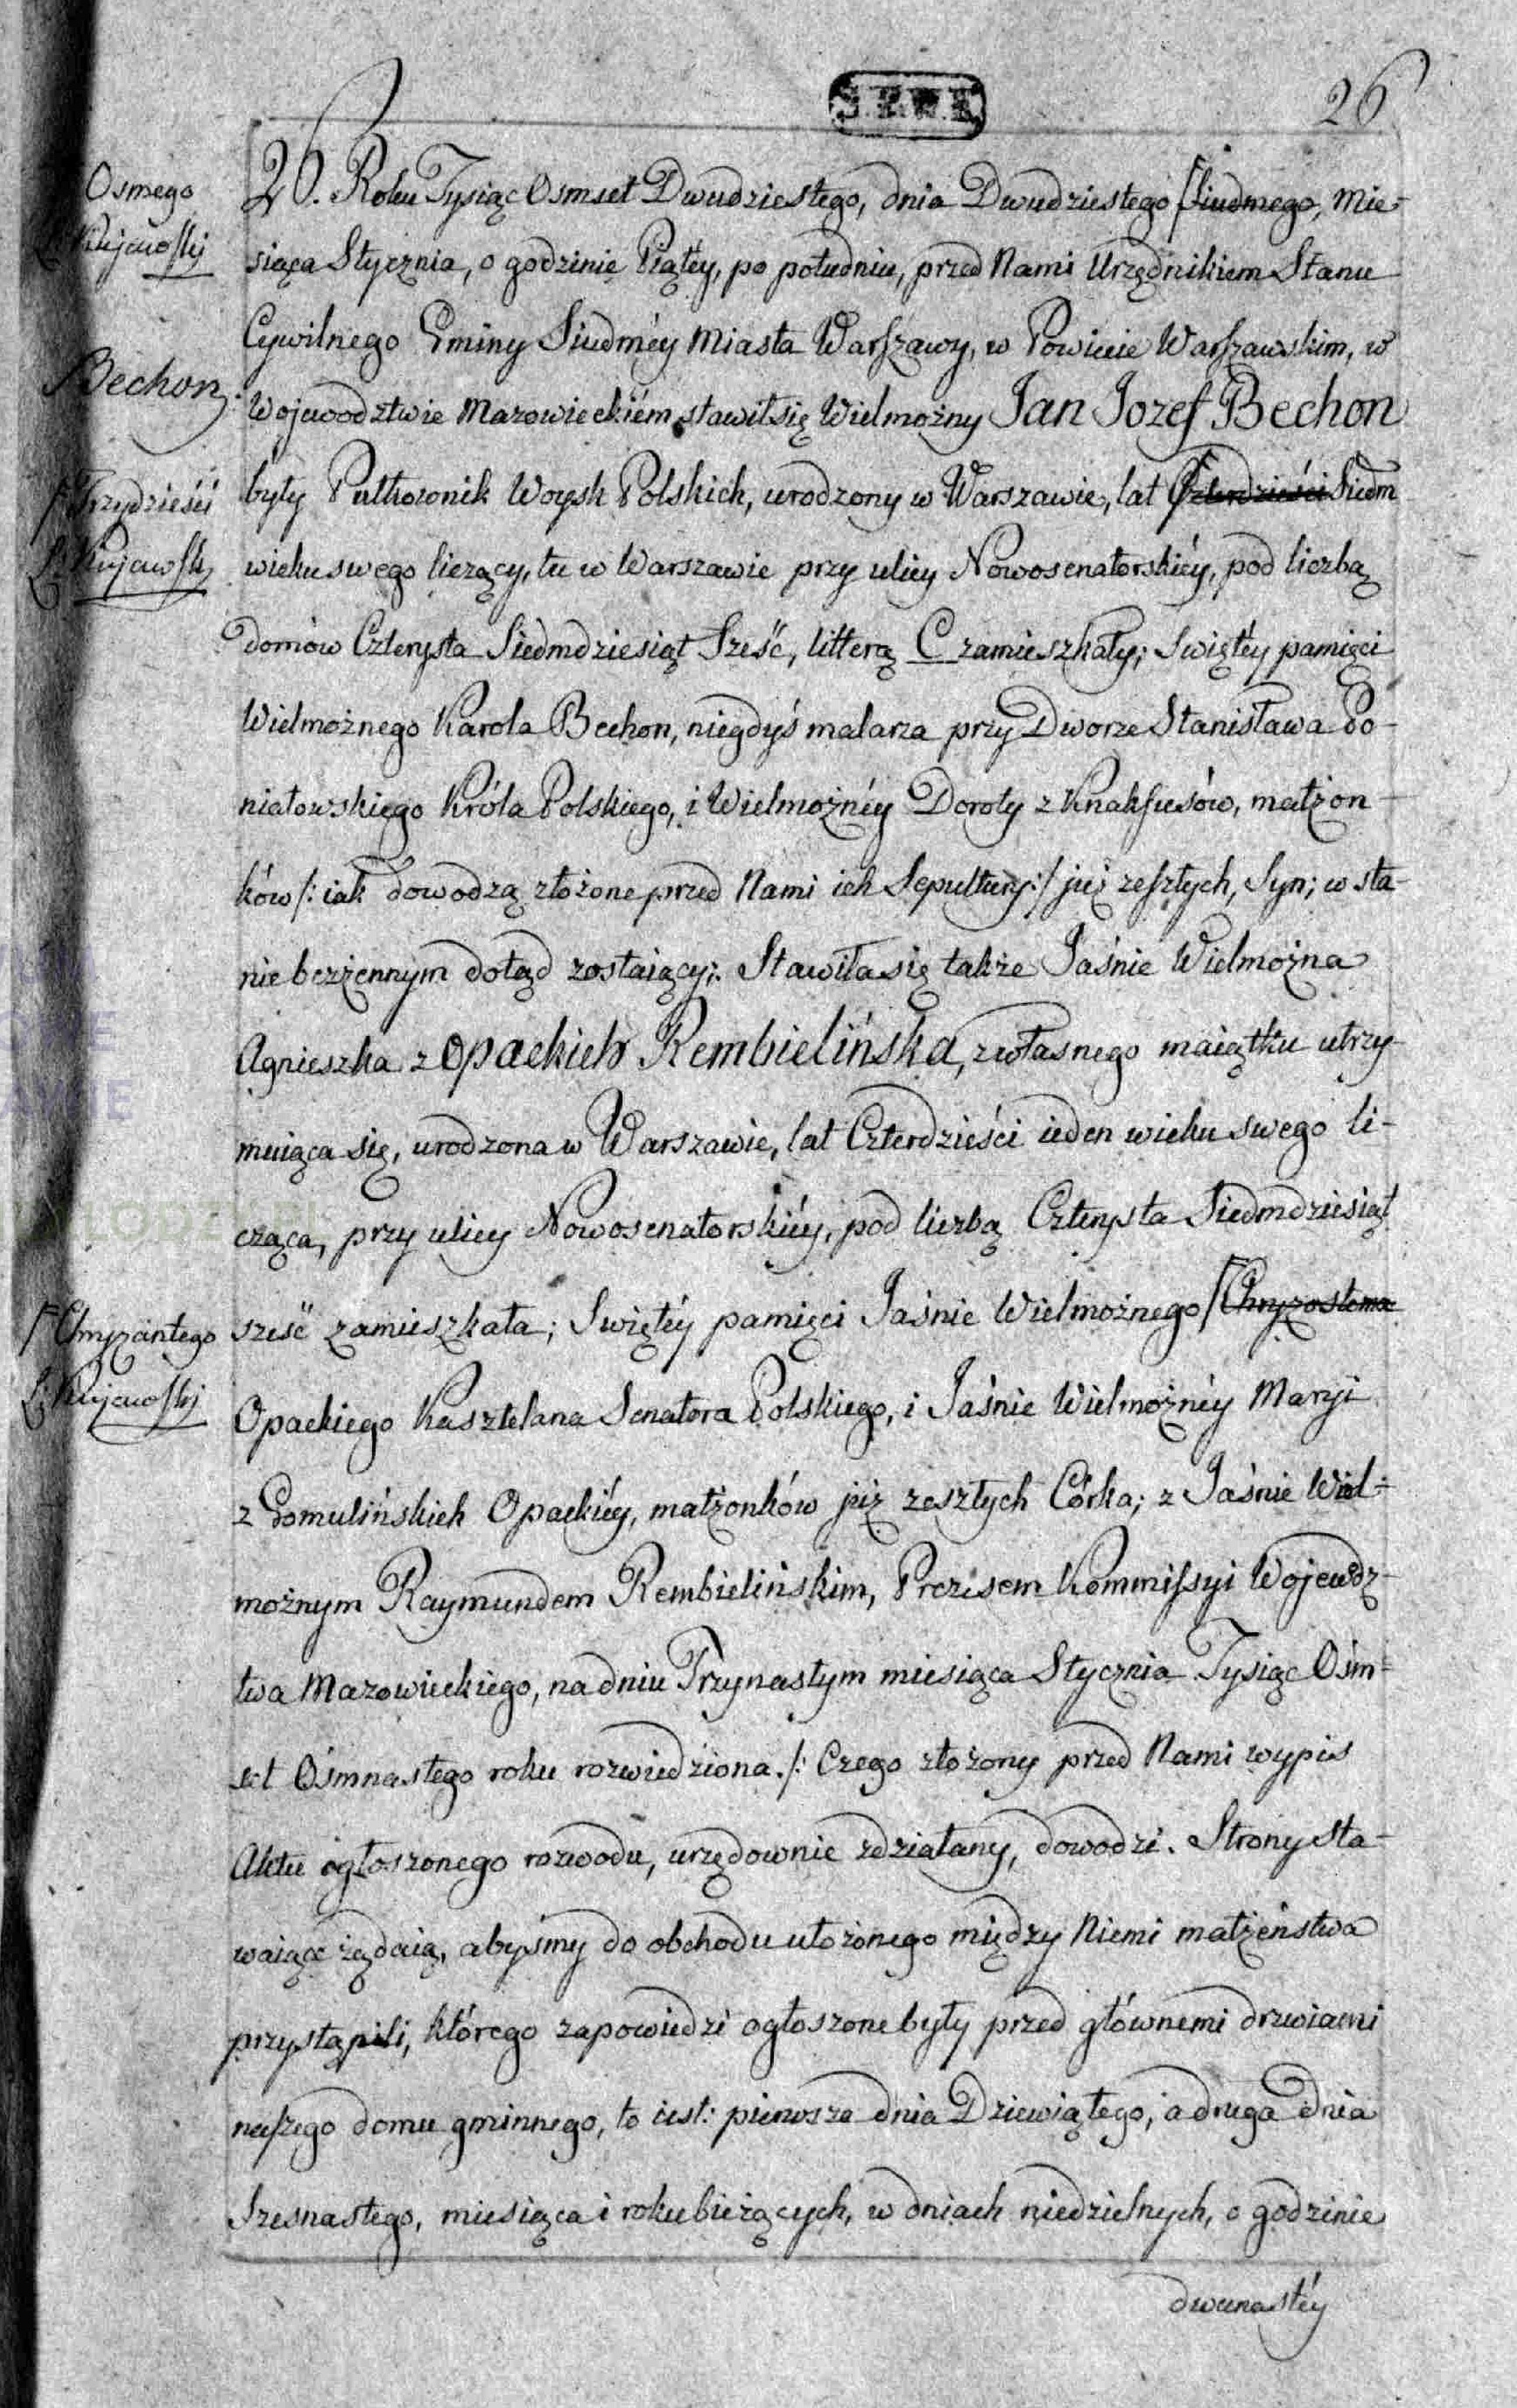 S.P.W.K
26
26. Roku Tysiąc Osmset Dwudziestego, dnia Dwudziestego Siudmego, Mie-
Osmego
Kujawski
siąca Stycznia, o godzinie Piątey, po południu, przed Nami Urzędnikiem Stanu
Cywilnego Gminy Siudméy Miasta Warszawy, w Powiecie Warszawskim, w
Bechon
Wojewodztwie Mazowieckiém stawił się Wielmożny Jan Jozef Bechon
były Pułkownik Woysk Polskich, urodzony w Warszawie, lat Czterdzieści Siedm
Trzydzieści
Kujawski
wieku swego liczący, tu w Warszawie przy ulicy Nowosenatorskiéy, pod liczbą
domów Czterysta Siedmdziesiąt Sześć, litterą C zamieszkały; Swiętéy pamięci
Wielmożnego Karola Bechon, niegdyś malarza przy Dworze Stanisława Po-
niatowskiego Króla Polskiego, i Wielmożnéy Doroty z Knakfusów, małżon-
ków /: iak dowodzą złożone przed Nami ich Sepultury :/ już zeszłych, Syn; w sta-
nie bezżennym dotąd zostaiący; Stawiła się także Jaśnie Wielmożna
Agnieszka z Opackich Rembielińska, z własnego maiątku utrzy-
muiąca się, urodzona w Warszawie, lat Czterdzieści ieden wieku swego li-
cząca, przy ulicy Nowosenatorskiéy, pod liczbą Czterysta Siedmdziesiąt
sześć zamieszkała; Swiętéy pamięci Jaśnie Wielmożnego Chryzostoma
Chryzantego
Kujawski
Opackiego Kasztelana Senatora Polskiego, i Jaśnie Wielmożnéy Maryi
z Gomulińskich Opackiéy, małżonków już zeszłych Córka; z Jaśnie Wiel-
możnym Raymundem Rembielińskim, Prezesem Kommissyi Wojewódz-
twa Mazowieckiego, na dniu Trzynastym miesiąca Stycznia Tysiąc Ośm-
set Ośmnastego roku rozwiedziona. /: Czego złożony przed Nami wypis
Aktu ogłoszonego rozwodu, urzędownie zdziałany, dowodzi. Strony sta-
waiące żądaią, abyśmy do obchodu ułożonego między Niemi małżeństwa
przystąpili, którego zapowiedzi ogłoszone były przed głównemi drzwiami
naszego domu gminnego, to iest: pierwsza dnia Dziewiątego, a druga dnia
Szesnastego, miesiąca i roku bieżących, w dniach niedzielnych, o godzinie
dwunastéy